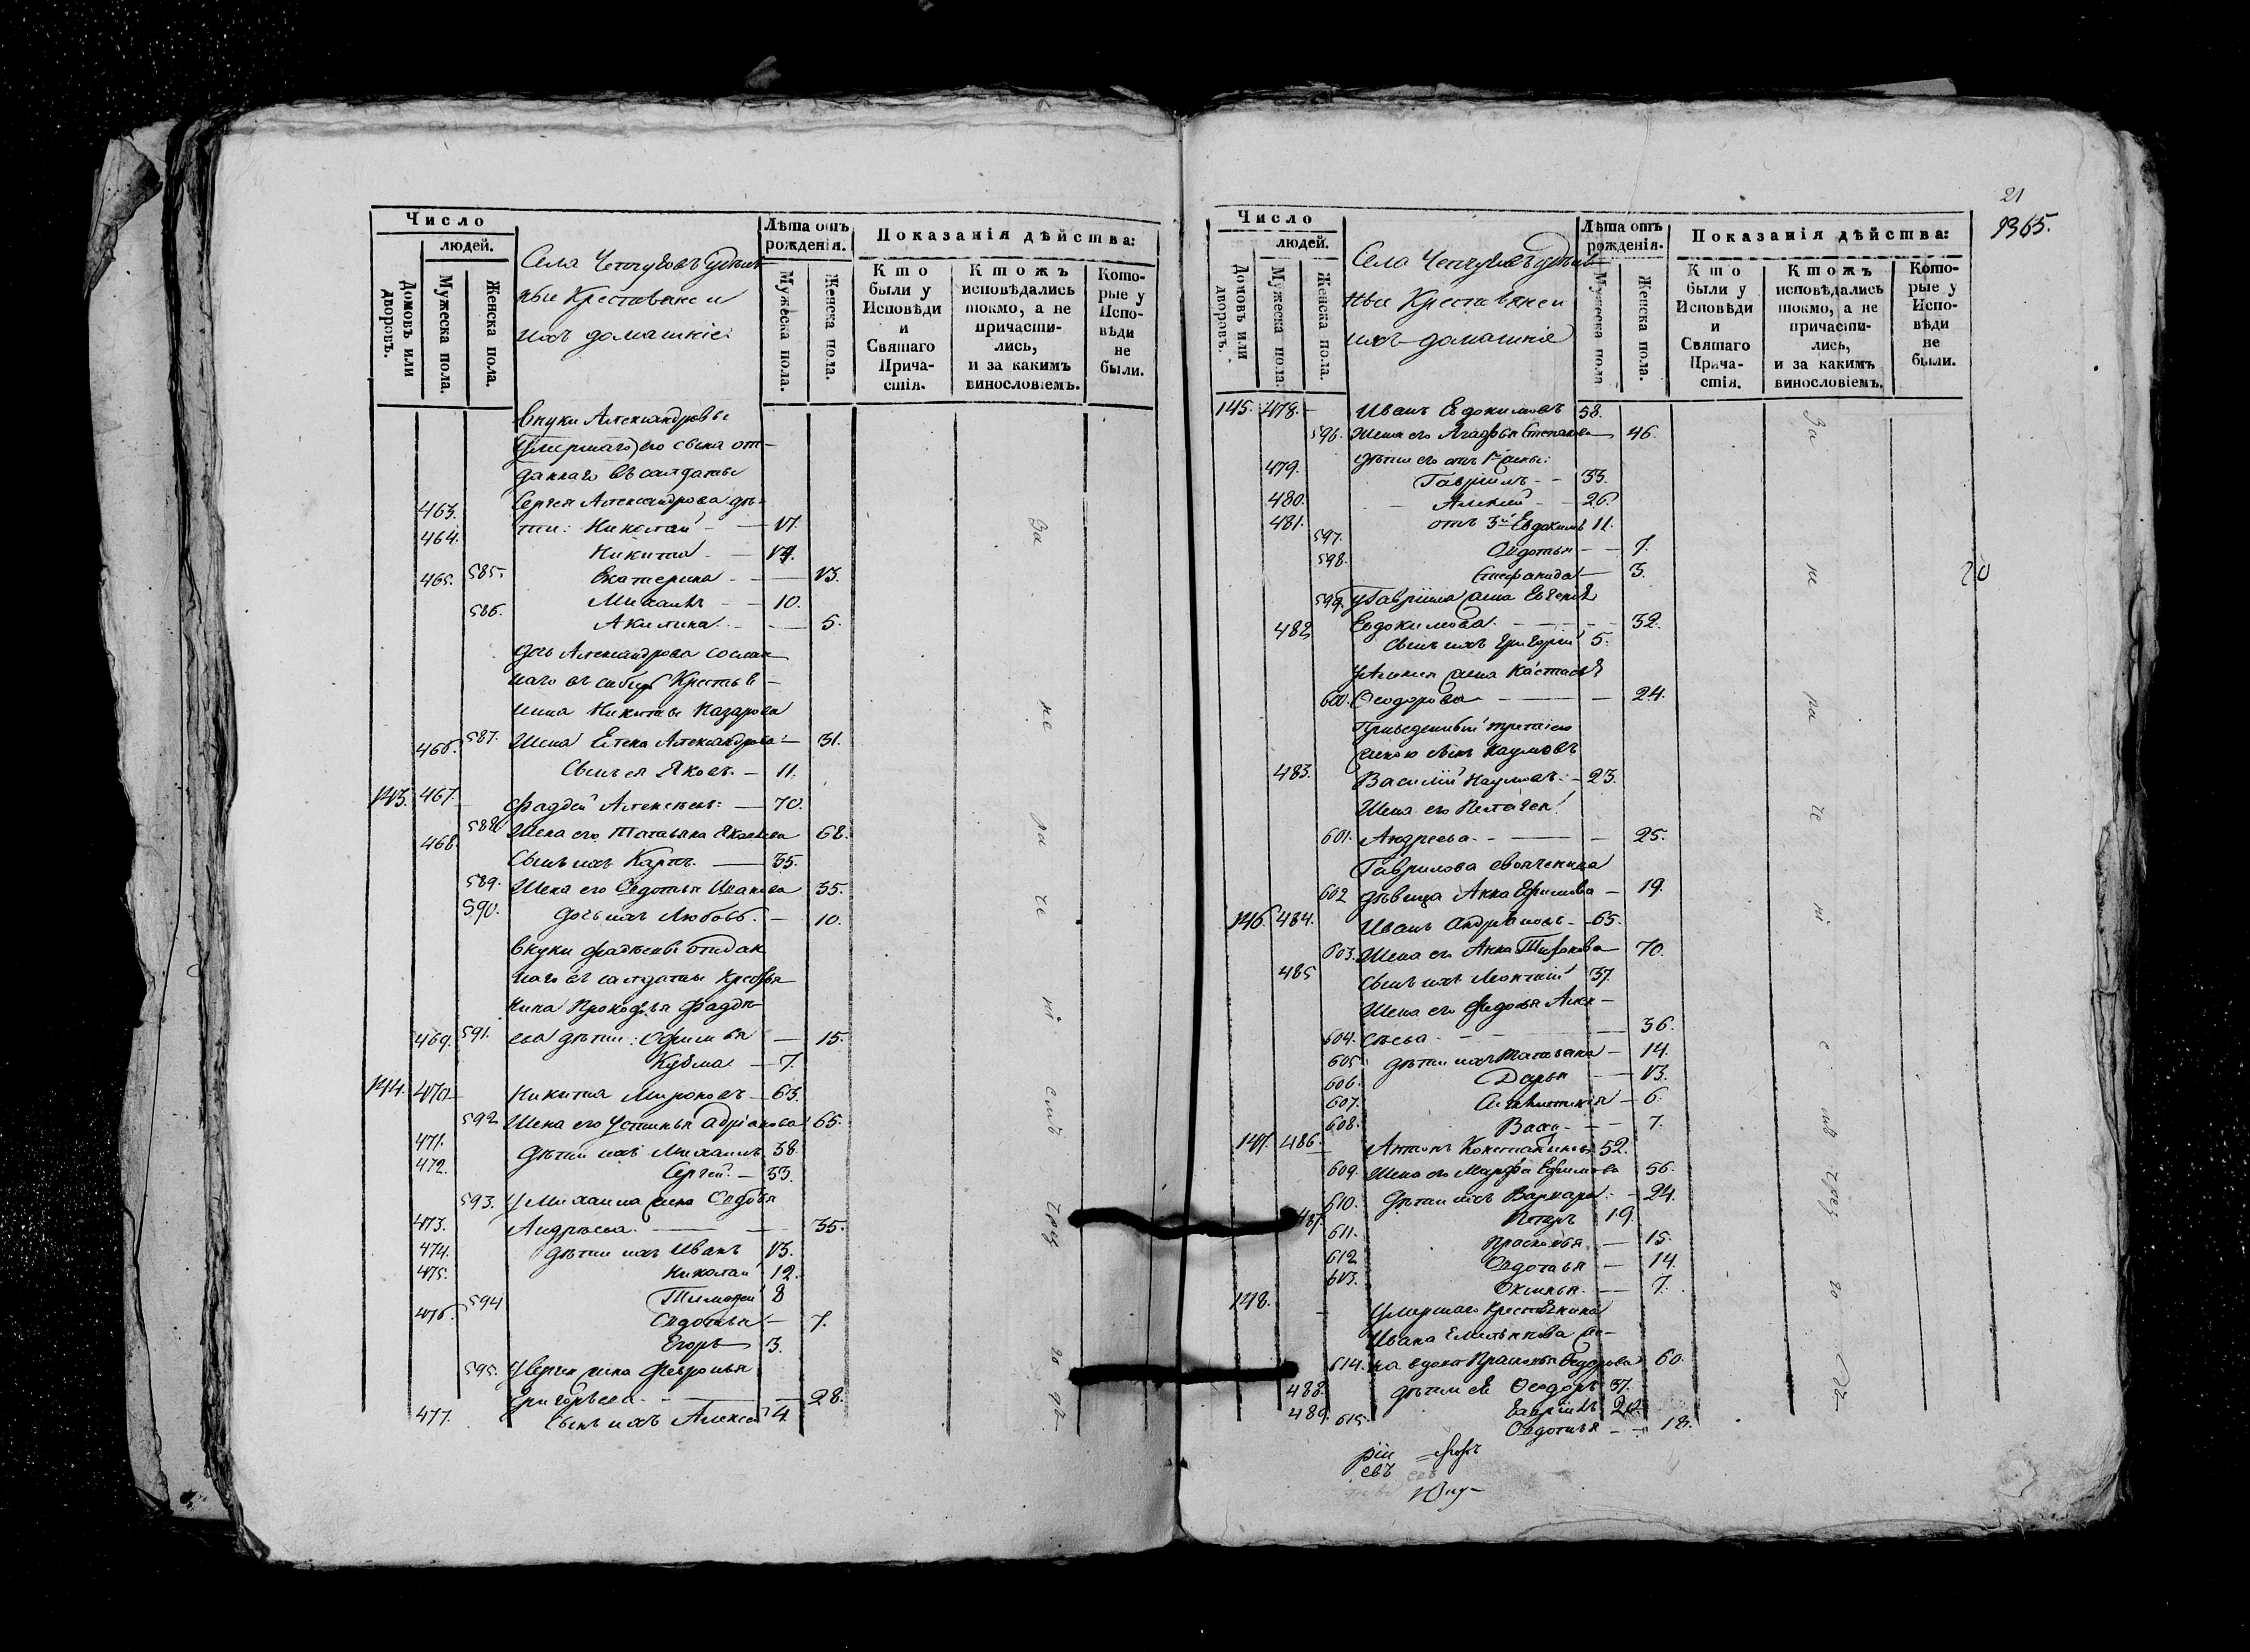 Число
людей.
Домовъ или дворовъ.
Мужеска пола.
Женска пола.
Села Чепчуговъ удѣль-
ные Крестьяне и
ихъ домашніе
Лѣта отъ рожденія.
Мужеска пола.
Женска пола.
Показанія дѣйства:
Кто были у Исповѣди и Святаго Причастія.
Ктожъ исповѣдались токмо, а не причастились, и за какимъ винословіемъ.
Которые у Исповѣди не были.
внуки Александровы
умершаго его сына от-
даннаго въ салдаты
Сергея Александрова дѣ-
463. ти: Николай 17.
464. Никита
585. Екатерина 13.
465. Михаилъ 10.
586. Акилина 5.
дочь Александрова сослан-
наго въ сибирь Крестья-
нина Никиты Назарова
587. Жена Елена Александрова 31.
466. Сынъ ея Яковъ 11.
143. 467. Фаддей Алексѣевъ 70.
588. Жена его Татьяна Яковлева 68.
468. Сынъ ихъ Карпъ 35.
589. Жена его Авдотья Иванова 35.
590. дочь ихъ Любовь 10.
внуки Фадѣевы отдан-
наго въ салдаты Крестья-
нина Прокофья Фадѣ-
591. ева дѣти: Офимья 15.
469. Кузма 7.
144. 470. Никита Мироновъ 63.
592. Жена его Устинья Адріанова 65.
471. дѣти ихъ Михаилъ 38.
472. Сергей 33.
593. У Михаила жена Авдотья
Андрѣева 35.
473. дѣти ихъ Иванъ 13.
474. Николай 12.
475. Тимофей 8
594. Авдотья 7.
476. Егоръ 3.
595. У Сергея жена Февронья
Григорьева 28.
477. Сынъ ихъ Алексей 4.
за не ра че ні емъ
21
1365.
Число
людей.
Домовъ или дворовъ.
Мужеска пола.
Женска пола.
Села Чепчуговъ удѣль-
ные Крестьяне и
ихъ домашніе
Лѣта отъ рожденія.
Мужеска пола.
Женска пола.
Показанія дѣйства:
Кто были у Исповѣди и Святаго Причастія.
Ктожъ исповѣдались токмо, а не причастились, и за какимъ винословіемъ.
Которые у Исповѣди не были.
145. 478. Иванъ Евдокимовъ 58.
596. Жена его Агафья Степанова 46.
дѣти его отъ 1й жены:
479. Гавріилъ 33.
480. Алексей 26.
481. отъ 3й Евдокимъ 11.
597. Авдотья 7.
598. Степанида 3.
599. у Гавріила жена Евгенія
Евдокимова 32.
482. Сынъ ихъ Григорій 5.
у Алексея жена Настасья
600. Феодорова 24.
Приведенный третіею
женою сынъ Наумовъ
483. Василій Наумовъ 23.
Жена его Пелагея
601. Андреева 25.
Гаврилова своячена
602. дѣвица Анна Ефимова 19.
146. 484. Иванъ Андреяновъ 65.
603. Жена его Анна 70.
485. Сынъ ихъ Леонтий 37.
Жена его Федосья Алек-
604. сѣева 36.
605. дѣти ихъ Татьяна 14.
606. Дарья 13.
607. 6.
608. Васа 7.
147. 486. Антонъ Константиновъ 52.
609. Жена его Марфа Ефимова 56.
610. дѣти ихъ Варвара 24.
487. Петръ 19.
611. Прасковья 15.
612. Авдотья 14.
613. Оксинья 7.
148. Умершаго Крестьянина
Ивана Емельянова же-
614. на вдова Прасковья Федорова 60.
488. дѣти ея Феодоръ 37.
489. Гавріилъ
615. Авдотья 18.
за не ра че ні е мъ
20